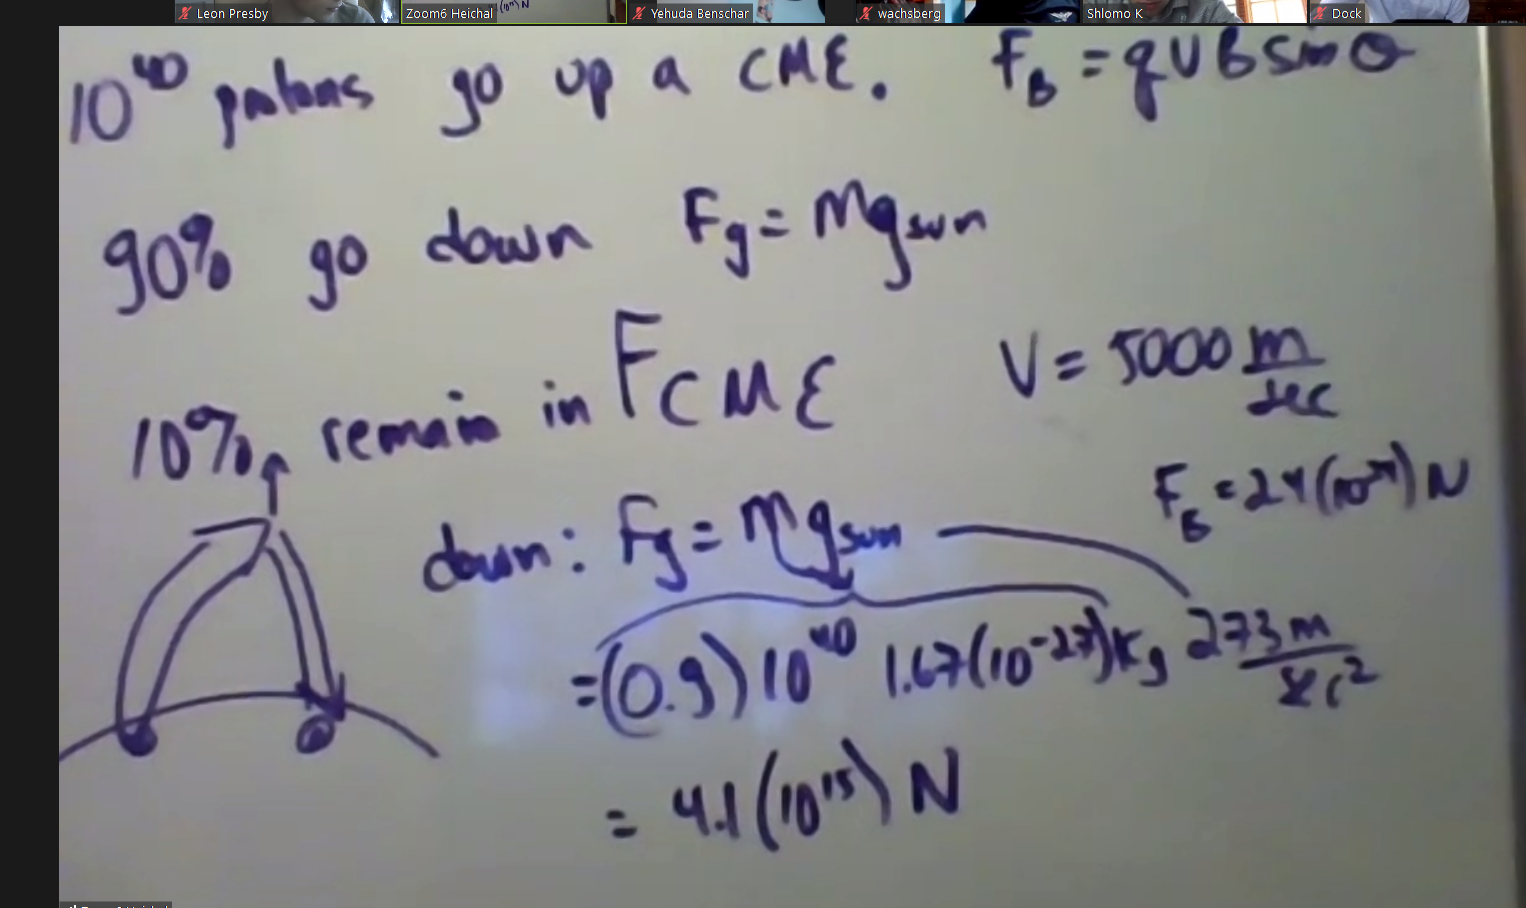 Leon Presby
Zoom6 Heichal
Yehuda Benschar
wachsberg
Shlomo K
Dock
10^40 protons go up a CME. F_B = qVB sin θ
90% go down F_g = Mg_sun
10% remain in F_CME V = 5000 m/sec
F_B = 24(10^24) N
down: F_g = Mg_sun
= (0.9) 10^40 1.67(10^-27) Kg 273 m/sec^2
= 4.1(10^15) N